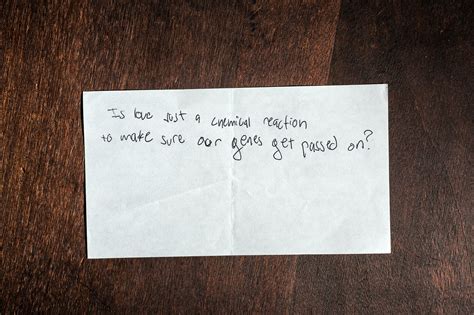 Is love just a chemical reaction
to make sure our genes get passed on?